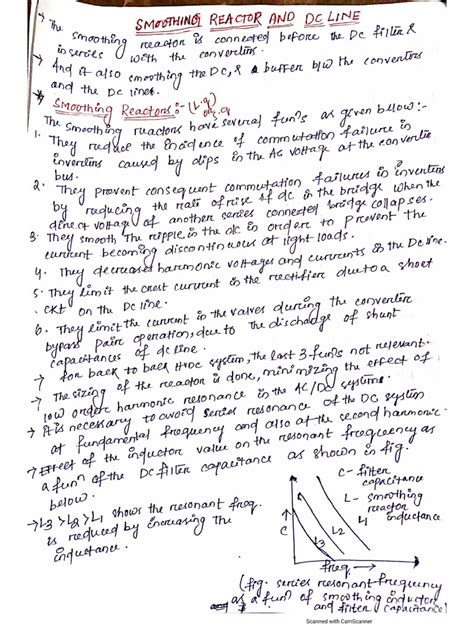 SMOOTHING REACTOR AND DC LINE
→ The smoothing reactor is connected before the DC filter &
in series with the converters.
→ And it also smoothing the DC, & a buffer b/w the converters
and the DC lines.
* Smoothing Reactors:- (L.q)
The smoothing reactors have several fun's as given below:-
1. They reduce the incidence of commutation failure in
inverters caused by dips in the AC voltage at the converter
bus.
2. They prevent consequent commutation failures in inverters
by reducing the rate of rise of dc in the bridge when the
direct voltage of another series connected bridge collapses.
3. They smooth the ripple in the dc in order to prevent the
current becoming discontinuous at light loads.
4. They decreases harmonic voltages and currents in the DC line.
5. They limit the crest current in the rectifier due to a short
ckt on the DC line.
6. They limit the current in the valves during the converter
bypass pair operation, due to the discharge of shunt
capacitances of dc line.
→ for back to back HVDC system, the last 3 funs not relevant.
→ The sizing of the reactor is done, minimizing the effect of
low order harmonic resonance in the AC/DC systems.
→ It is necessary to avoid series resonance of the DC system
at fundamental frequency and also at the second harmonic.
→ Effect of the inductor value on the resonant frequency as
a fun of the DC filter capacitance as shown in fig.
below.
→ L3 > L2 > L1 shows the resonant freq.
is reduced by increasing the
inductance.
C- filter
capacitance
L- smoothing
reactor
inductance
C
L3
L2
L1
freq
(fig. series resonant frequency
as a fun of smoothing inductor
and filter capacitance)
Scanned with CamScanner